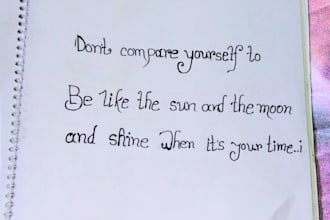 Don't compare yourself to
Be like the sun and the moon
and shine When it's your time..i